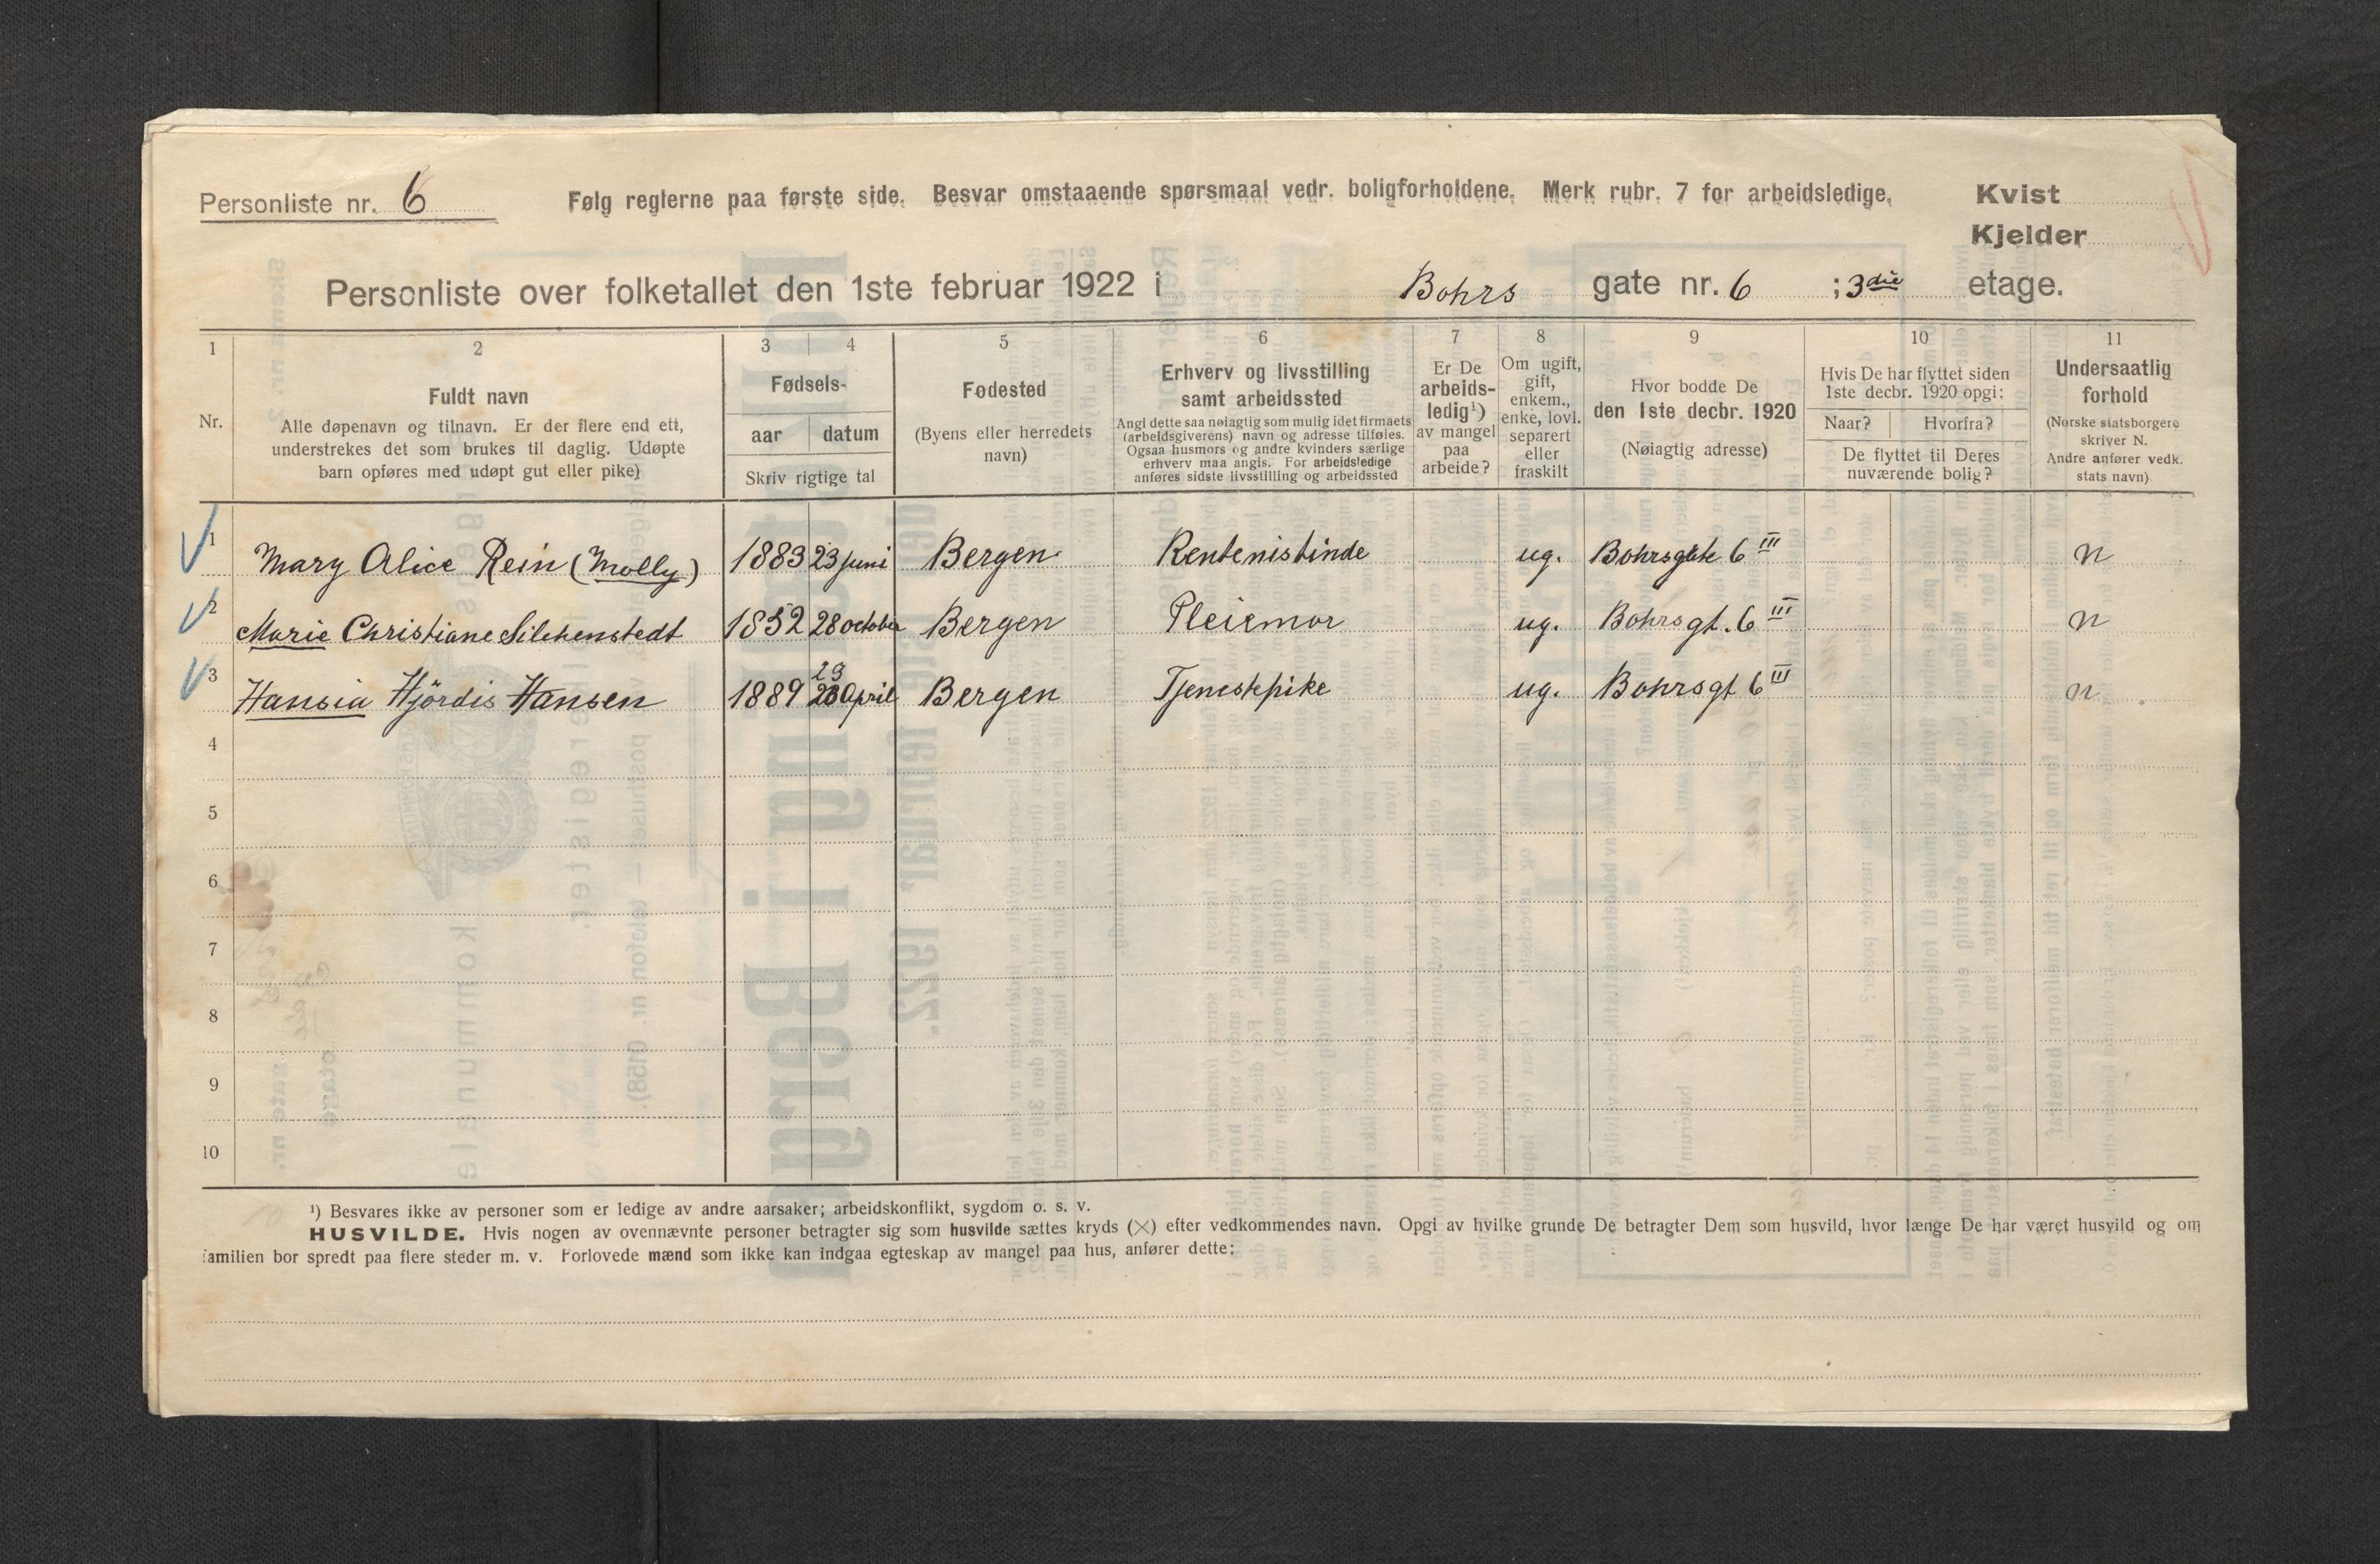 Personliste nr. 6
Følg reglerne paa første side. Besvar omstaaende spørsmaal vedr. boligforholdene. Merk rubr. 7 for arbeidsledige.
Kvist
Kjelder
Personliste over folketallet den 1ste februar 1922 i Bohrs gate nr. 6 ; 3die etage.
1
2
3
4
5
6
7
8
9
10
11
Nr.
Fuldt navn
Alle døpenavn og tilnavn. Er der flere end ett,
understrekes det som brukes til daglig. Udøpte
barn opføres med udøpt gut eller pike)
Fødsels-
aar
datum
Skriv rigtige tal
Fødested
(Byens eller herredets
navn)
Erhverv og livsstilling
samt arbeidssted
Angi dette saa nøiagtig som mulig idet firmaets
(arbeidsgiverens) navn og adresse tilføies.
Ogsaa husmors og andre kvinders særlige
erhverv maa angis. For arbeidsledige
anføres sidste livsstilling og arbeidssted
Er De
arbeids-
ledig¹)
av mangel
paa
arbeide?
Om ugift,
gift,
enkem.,
enke, lovl.
separert
eller
fraskilt
Hvor bodde De
den 1ste decbr. 1920
(Nøiagtig adresse)
Hvis De har flyttet siden
1ste decbr. 1920 opgi:
Naar?
Hvorfra?
De flyttet til Deres
nuværende bolig?
Undersaatlig
forhold
(Norske statsborgere
skriver N.
Andre anfører vedk.
stats navn)
1 Mary Alice Rein (Molly) 1883 23 juni Bergen Rentenistinde ug. Bohrsgate 6 III n
2 Marie Christiane Silchenstedt 1852 28 october Bergen Pleiemor ug. Bohrsgt. 6 III n
29
3 Hansia Hjördis Hansen 1889 28 April Bergen Tjenestepike ug. Bohrsgt 6 III n
4
5
6
7
8
9
10
¹) Besvares ikke av personer som er ledige av andre aarsaker; arbeidskonflikt, sygdom o. s. v.
HUSVILDE. Hvis nogen av ovennævnte personer betragter sig som husvilde sættes kryds (×) efter vedkommendes navn. Opgi av hvilke grunde De betragter Dem som husvild, hvor længe De har været husvild og om
familien bor spredt paa flere steder m. v. Forlovede mænd som ikke kan indgaa egteskap av mangel paa hus, anfører dette: